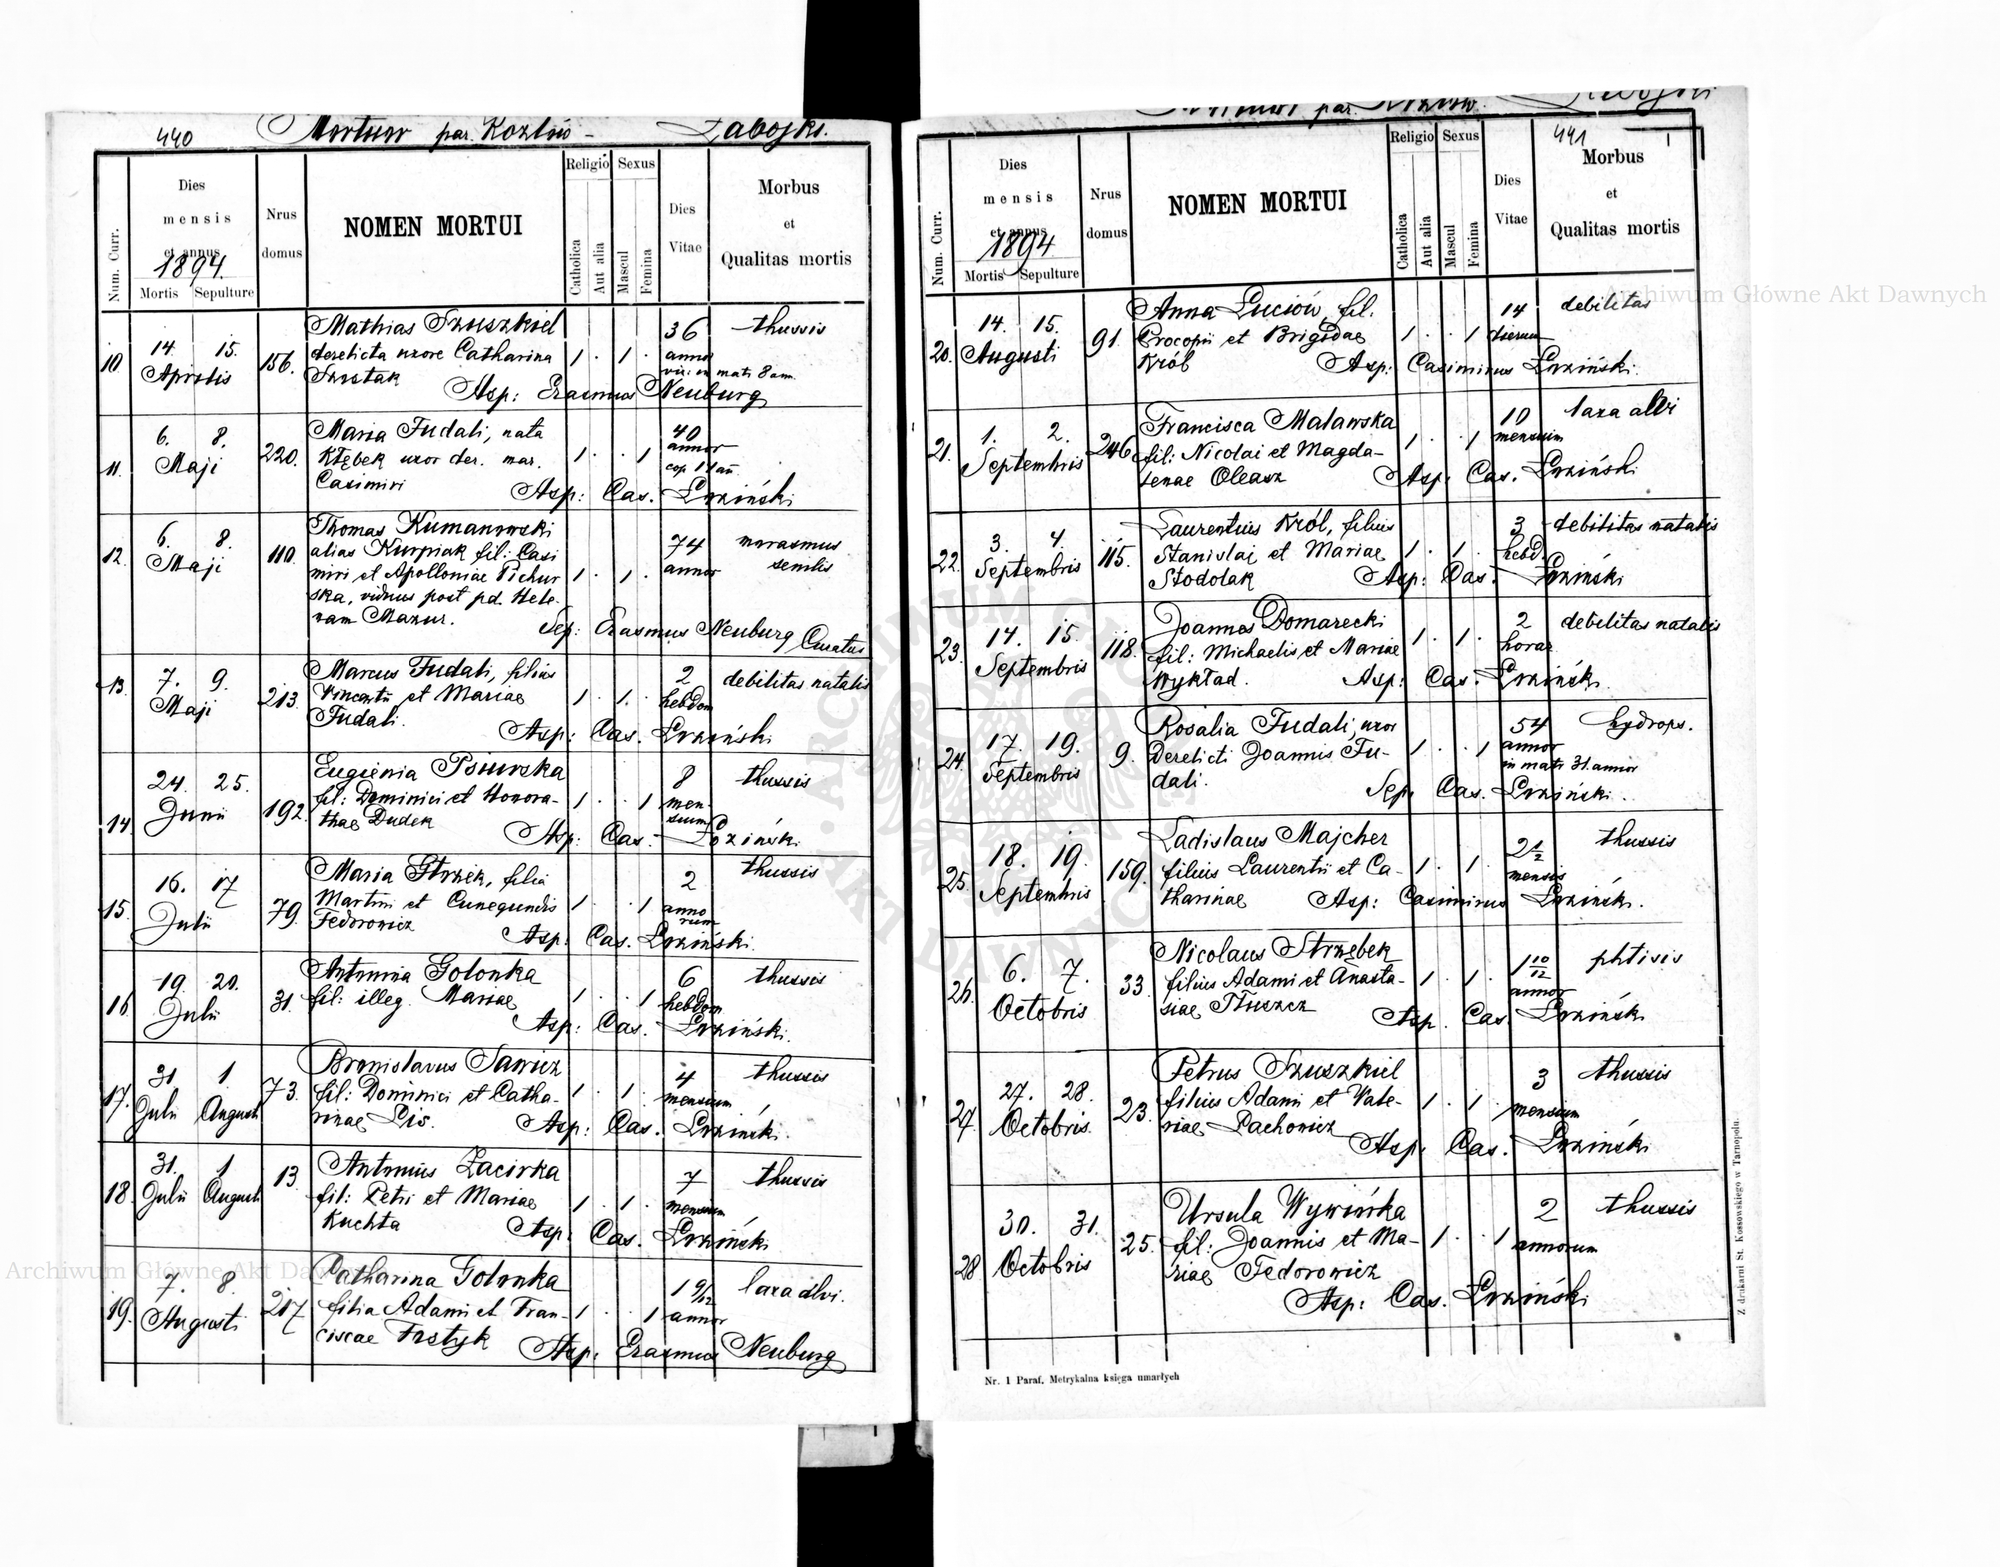 440 Mortuor par. Kozłów - Zabojki.
Num. Curr.
Dies
mensis
et annus
1894.
Mortis Sepulture
Nrus
domus
NOMEN MORTUI
Religio
Catholica
Aut alia
Sexus
Mascul
Femina
Dies
Vitae
Morbus
et
Qualitas mortis
10 14. 15. Aprilis 156. Mathias Szuszkiel 1 . 1 . 36 thussis
derelicta uxore Catharina annor
Szostak in matr 8 ann.
Asp: Erasmus Neuburg
11. 6. 8. Maji 220. Maria Fudali, nata 1 . . 1 40
Kłębek uxor der. mar. annor
Casimiri cop. 11 an.
Asp: Cas. Łoziński
12. 6. 8. Maji 110. Thomas Kumanowski 1 . 1 . 74 marasmus
alias Kurpiak fil: Casi annor senilis
miri et Apolloniae Pichur
ska, viduus post pd. Hele-
nam Mazur.
Sep: Erasmus Neuburg Curatus
13. 7. 9. Maji 213. Marcus Fudali, filius 1 . 1 . 2 debilitas natalis
Vincentii et Mariae hebdom
Fudali.
Asp: Cas. Łoziński
14. 24. 25. Junii 192. Eugienia Psiurska 1 . . 1 8 thussis
fil: Dominici et Honora- men-
thae Dudek sium
Asp: Cas. Łoziński
15. 16. 17 Julii 79. Maria Strzek, filia 1 . . 1 2 thussis
Martini et Cunegundis anno
Fedorowicz rum
Asp. Cas. Łoziński.
16. 19. 20. Julii 31. Antonina Golonka 1 . . 1 6 thussis
fil: illeg. Mariae hebdom
Asp: Cas. Łoziński.
17. 31. Julii 1 Augusti 73. Bronislavus Sawicz 1 . 1 . 4 thussis
fil: Dominici et Catha- mensium
rinae Lis.
Asp: Cas. Łoziński.
18. 31. Julii 1 Augusti 13. Antonius Zacirka 1 . 1 . 7 thussis
fil: Petri et Mariae mensium
Kuchta
Asp: Cas. Łoziński
19. 7. 8. Augusti 217 Catharina Golonka 1 . . 1 1 9/12 laxa alvi.
filia Adami et Fran- annor
ciscae Trstyk
Asp: Erasmus Neuburg
par. Kozłów. Zabojki
441
Num. Curr.
Dies
mensis
et annus
1894.
Mortis Sepulture
Nrus
domus
NOMEN MORTUI
Religio
Catholica
Aut alia
Sexus
Mascul
Femina
Dies
Vitae
Morbus
et
Qualitas mortis
20. 14. 15. Augusti 91. Anna Luciów, fil. 1 . . 1 14 debilitas
Procopii et Brigidae dierum
Król
Asp: Casimirus Łoziński.
21. 1. 2. Septembris 246 Francisca Malawska 1 . . 1 10 laxa alvi
fil: Nicolai et Magda- mensium
lenae Oleasz
Asp. Cas. Łoziński
22. 3. 4. Septembris 115. Laurentius Król, filius 1 . 1 . 3 debilitas natalis
Stanislai et Mariae hebd.
Stodolak
Asp: Cas. Łoziński
23. 14. 15. Septembris 118. Joannes Domarecki 1 . 1 . 2 debilitas natalis
fil: Michaelis et Mariae horae
Wykład.
Asp: Cas. Łoziński.
24. 17. 19. Septembris 9. Rosalia Fudali, uxor 1 . . 1 54 hydrops.
Derelicti Joannis Fu- annor
dali. in matr 31. annor
Sep. Cas. Łoziński.
25. 18. 19. Septembris 159. Ladislaus Majcher 1 . 1 . 2 1/2 thussis
filius Laurentii et Ca- mensis
tharinae
Asp: Casimirus Łoziński.
26. 6. 7. Octobris 33. Nicolaus Strzębek 1 . 1 . 1 10/12 phtisis
filius Adami et Anasta- annor
siae Tłuszcz
Asp. Cas. Łoziński
27 27. 28. Octobris 23. Petrus Szuszkiel 1 . 1 . 3 thussis
filius Adami et Vale- mensium
riae Lachowicz
Asp. Cas. Łoziński
28 30. 31. Octobris 25. Ursula Wywińska 1 . . 1 2 thussis
fil: Joannis et Ma- annorum
riae Fedorowicz
Asp: Cas. Łoziński
Nr. 1 Paraf. Metrykalna księga umarłych
Z drukarni St. Kossowskiego w Tarnopolu.
Archiwum Główne Akt Dawnych
Archiwum Główne Akt Dawnych
ARCHIWUM GŁÓWNE AKT DAWNYCH